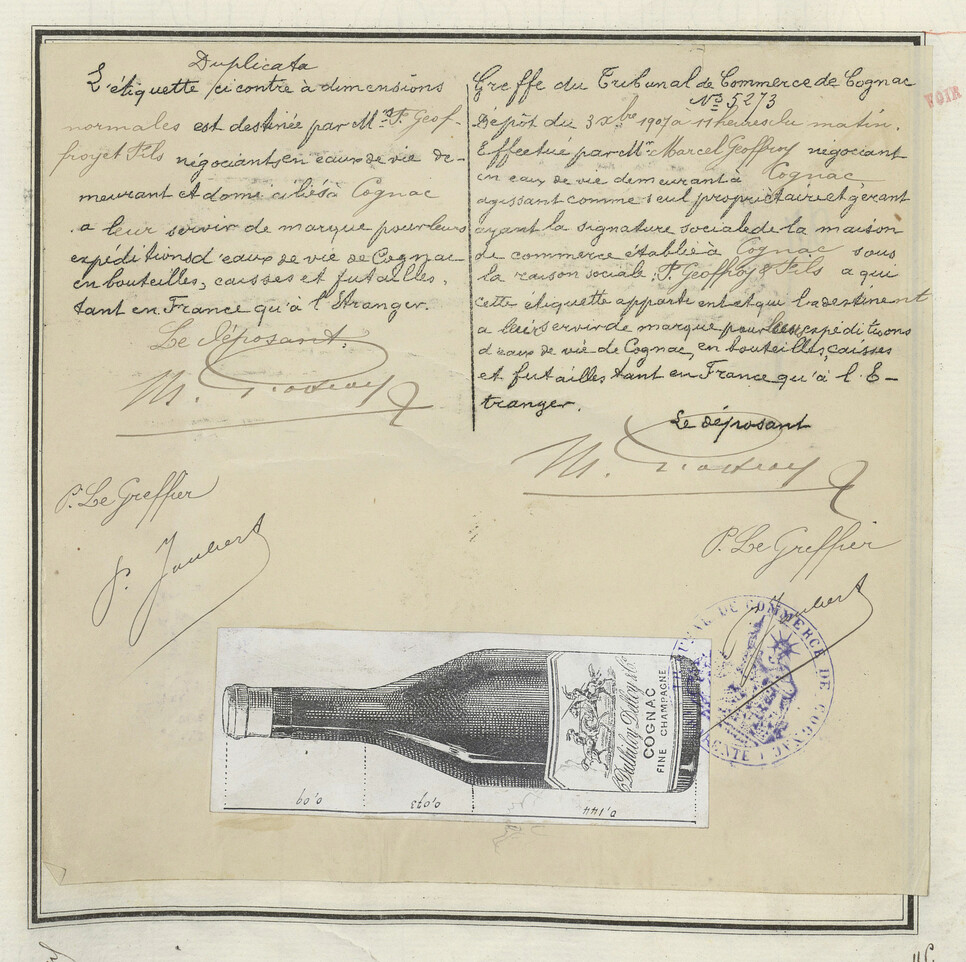 Duplicata
L'étiquette ci contre à dimensions
normales est destinée par Mrs F. Geof-
froy et Fils négociants en eaux de vie de-
meurant et domiciliés à Cognac
a leur servir de marque pour leurs
expéditions d'eaux de vie de Cognac
en bouteilles, caisses et futailles,
tant en France qu'à l'Etranger.
Le déposant:
P. Le Greffier
Greffe du Tribunal de Commerce de Cognac
No 5273
Dépôt du 3 Xbre 1907 a 11 heures du matin.
Effectué par Mr Marcel Geoffroy négociant
en eaux de vie demeurant à Cognac
agissant comme seul propriétaire et gérant
ayant la signature sociale de la maison
de commerce établie à Cognac sous
la raison sociale: F. Geoffroy & Fils a qui
cette étiquette appartient et qui la destinent
a leur servir de marque pour leurs expéditions
d'eaux de vie de Cognac, en bouteilles, caisses
et futailles tant en France qu'à l'E-
tranger.
Le déposant
P. Le Greffier
J. Joubert
TRIBUNAL DE COMMERCE DE COGNAC
COGNAC
FINE CHAMPAGNE
0,09
0,093
0,144
VOIR